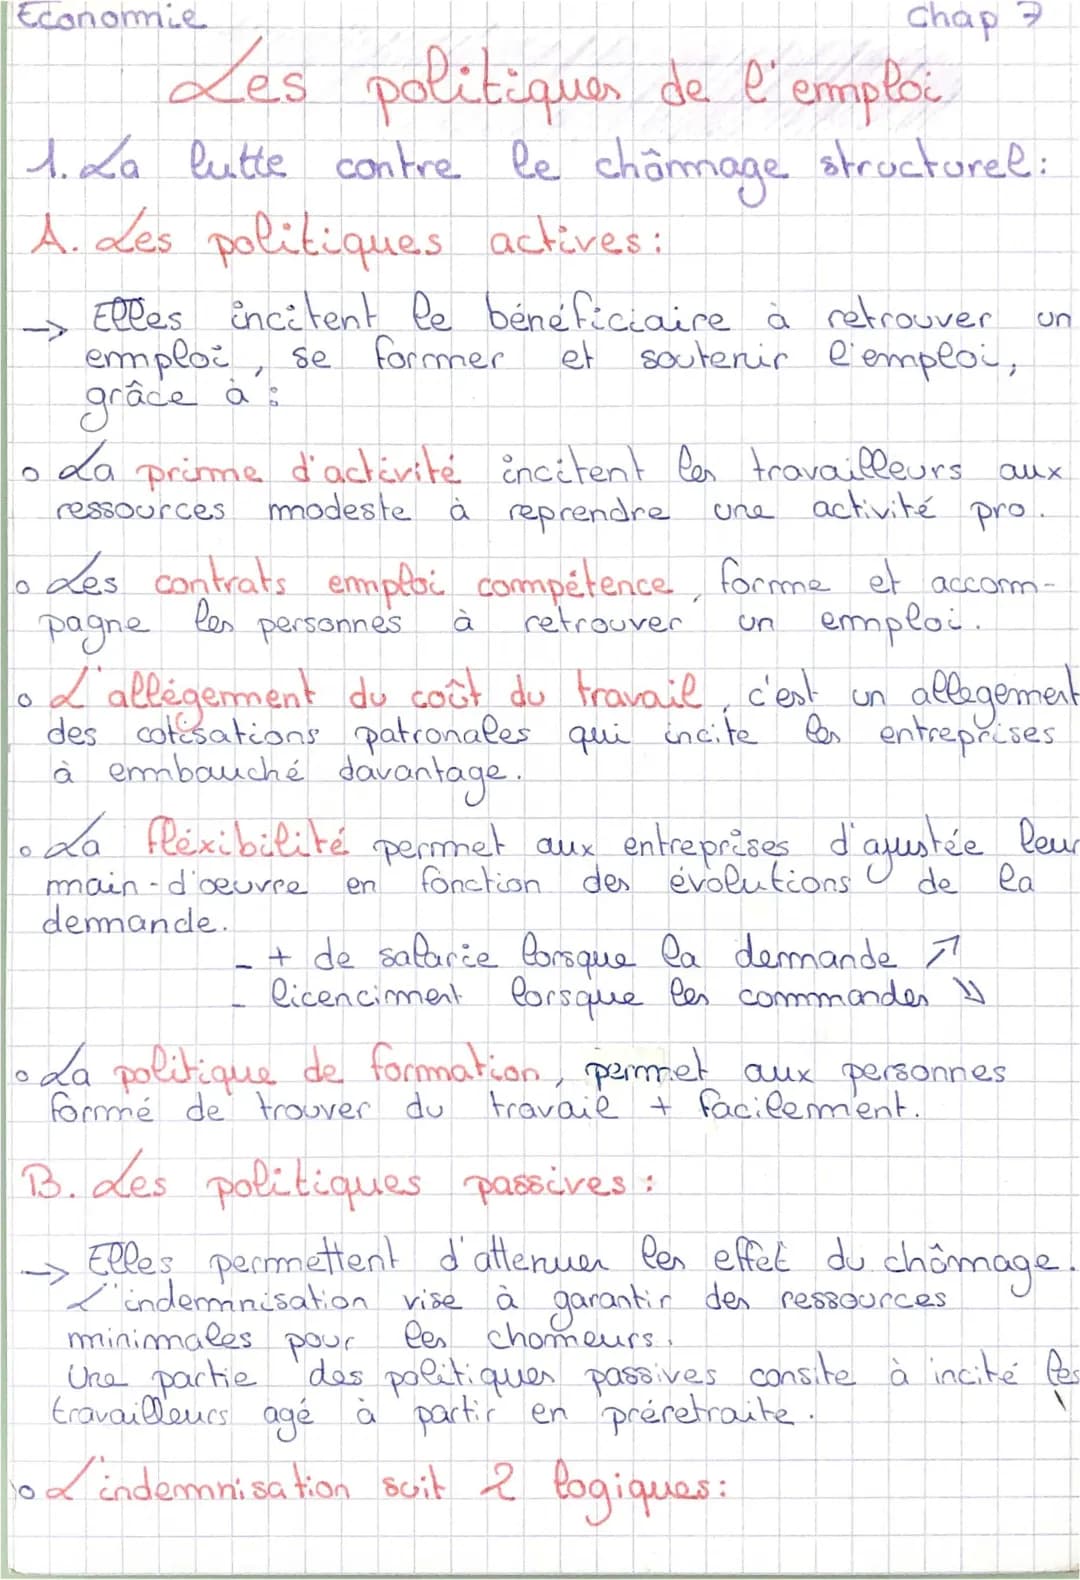 Economie Chap 7
Les politiques de l'emploi
1. La lutte contre le chômage structurel :
A. Les politiques actives :
→ Elles incitent le bénéficiaire à retrouver un
emploi, se former et soutenir l'emploi,
grâce à :
o La prime d'activité incitent les travailleurs aux
ressources modeste à reprendre une activité pro.
o Les contrats emploi compétence, forme et accom-
pagne les personnes à retrouver un emploi.
o L'allégement du coût du travail, c'est un allegement
des cotisations patronales qui incite les entreprises
à embauché davantage.
o La fléxibilité permet aux entreprises d'ajustée leur
main-d'œuvre en fonction des évolutions de la
demande.
- + de salarie lorsque la demande ↗
- licenciment lorsque les commandes ↘
o La politique de formation, permet aux personnes
formé de trouver du travail + facilement.
B. Les politiques passives :
→ Elles permettent d'attenuer les effet du chômage.
L'indemnisation vise à garantir des ressources
minimales pour les chomeurs.
Une partie des politiques passives consite à incité les
travailleurs agé à partir en préretraite.
o L'indemnisation suit 2 logiques :